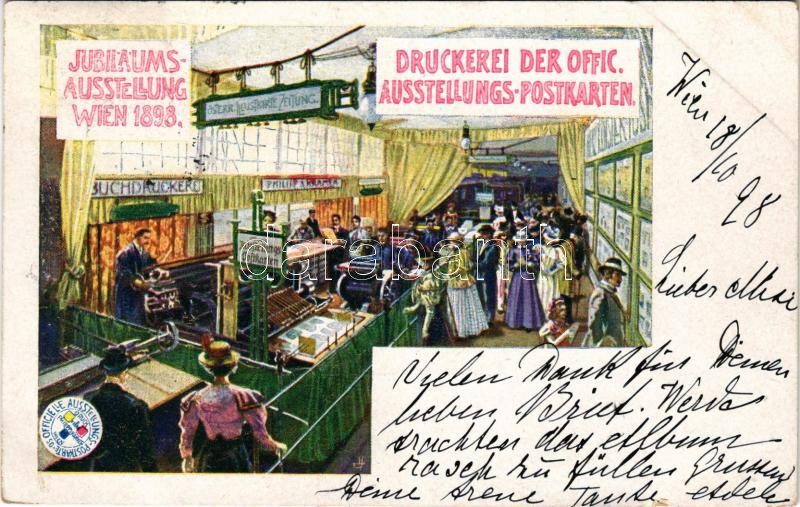 JUBILÄUMS-
AUSSTELLUNG
WIEN 1898.
DRUCKEREI DER OFFIC.
AUSSTELLUNGS-POSTKARTEN.
ÖSTERR. ILLUSTRIRTE ZEITUNG.
BUCHDRUCKEREI
PHILIPP & KRAMER
darabanth
Wien 18/10 98
Lieber
Vielen Dank für Deinen
lieben Brief. Werde
trachten das Album
rasch zu füllen
Deine treue Tante
OFFICIELLE AUSSTELLUNGS-POSTKARTE